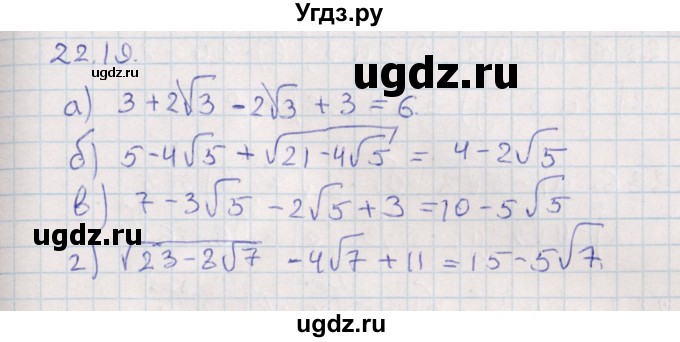 Угдз.ру
22.19.
ugdz.ru
а) 3 + 2√3 - 2√3 + 3 = 6.
б) 5 - 4√5 + √(21 - 4√5) = 4 - 2√5
в) 7 - 3√5 - 2√5 + 3 = 10 - 5√5
ugdz.ru
г) √(23 - 8√7) - 4√7 + 11 = 15 - 5√7.
ugdz.ru